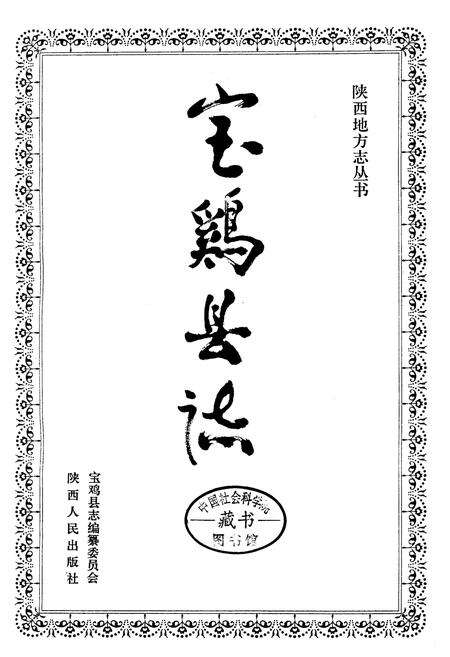 陕西地方志丛书
宝鷄县誌
宝鸡县志编纂委员会
陕西人民出版社
中国社会科学院
藏书
图书馆